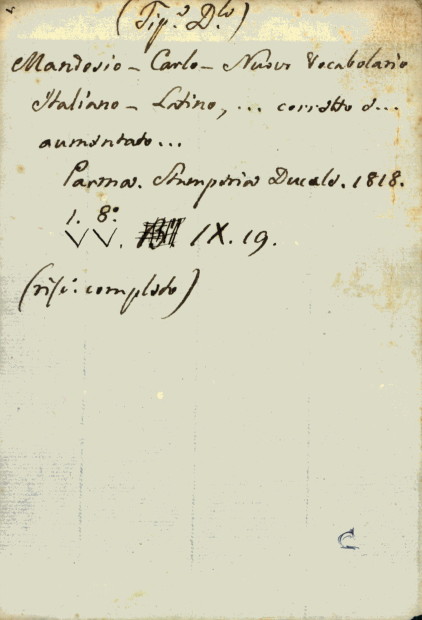 (Tip.ª D.le)
Mandosio - Carlo - Nuovo Vocabolario
Italiano - Latino, ... corretto e...
aumentato...
Parma. Stamperia Ducale. 1818.
1. 8º
VV. IX. 19.
completo)
C